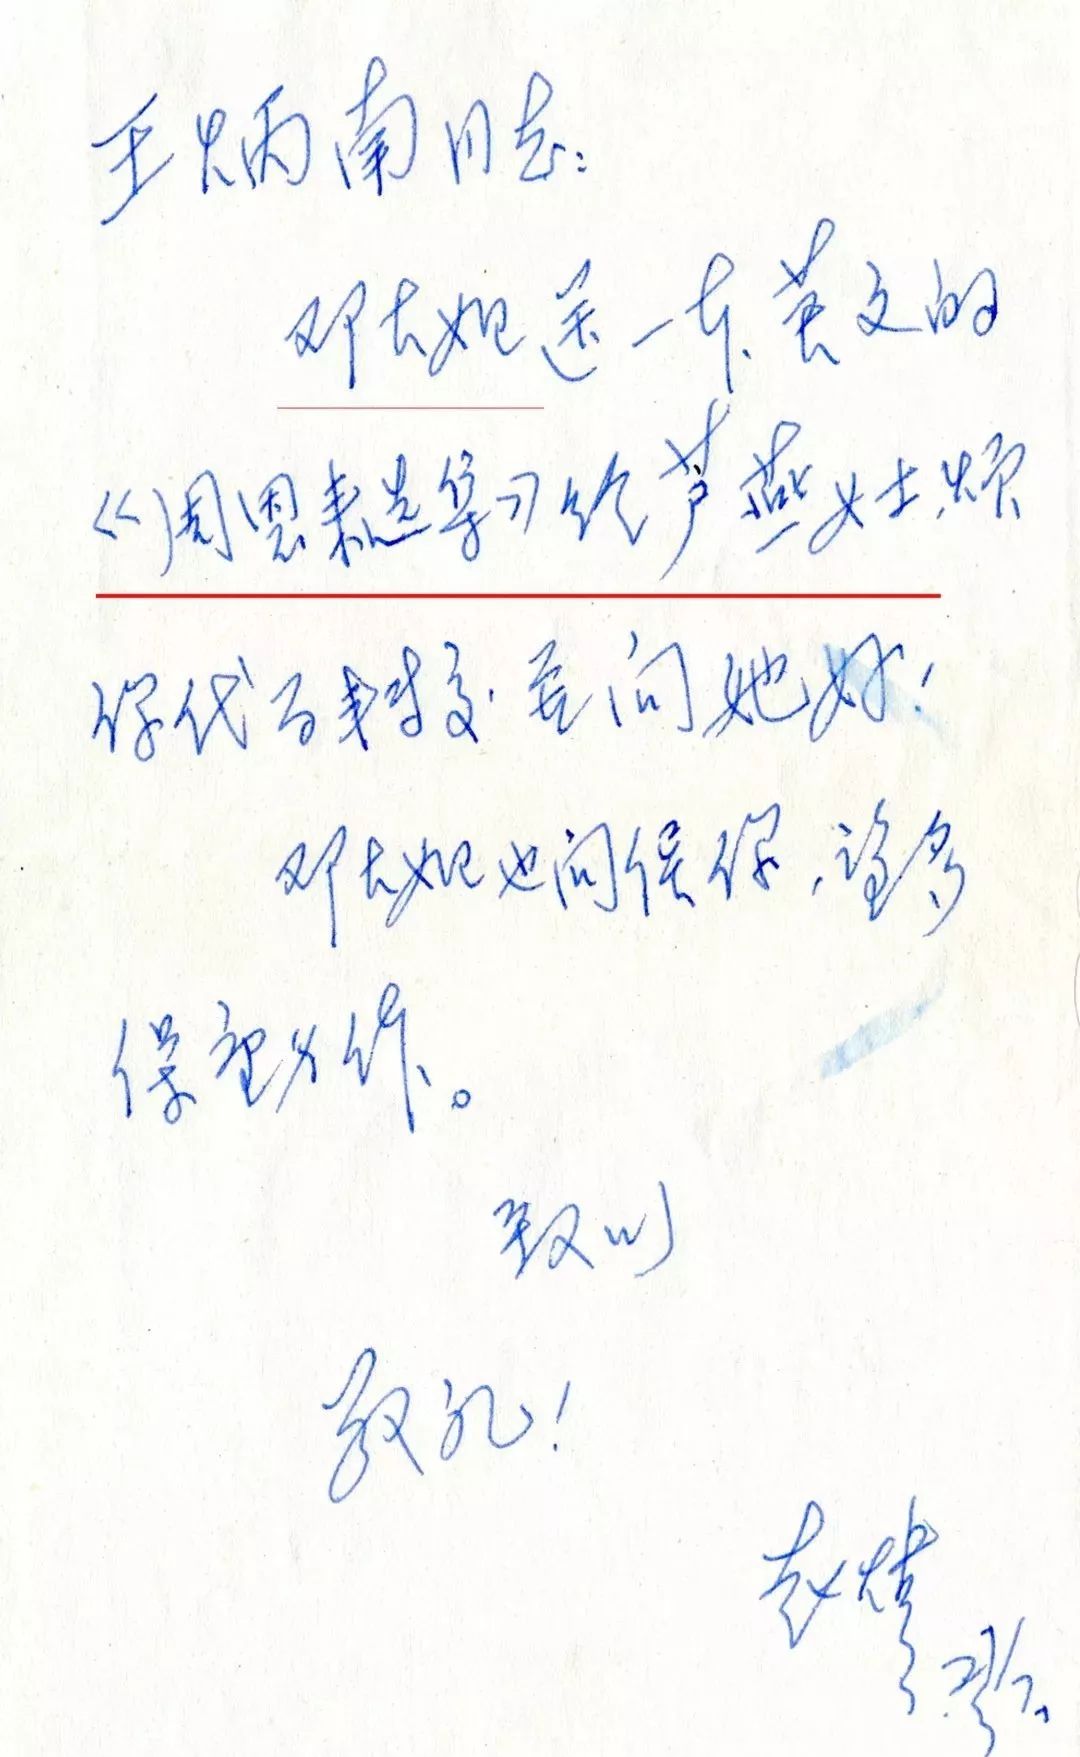 王炳南同志:
邓大姐送一本英文的
《周恩来选集》给芦燕女士,烦
你代为转交.并问她好!
邓大姐也问候你,望多
保重身体。
致以
敬礼!
赵炜